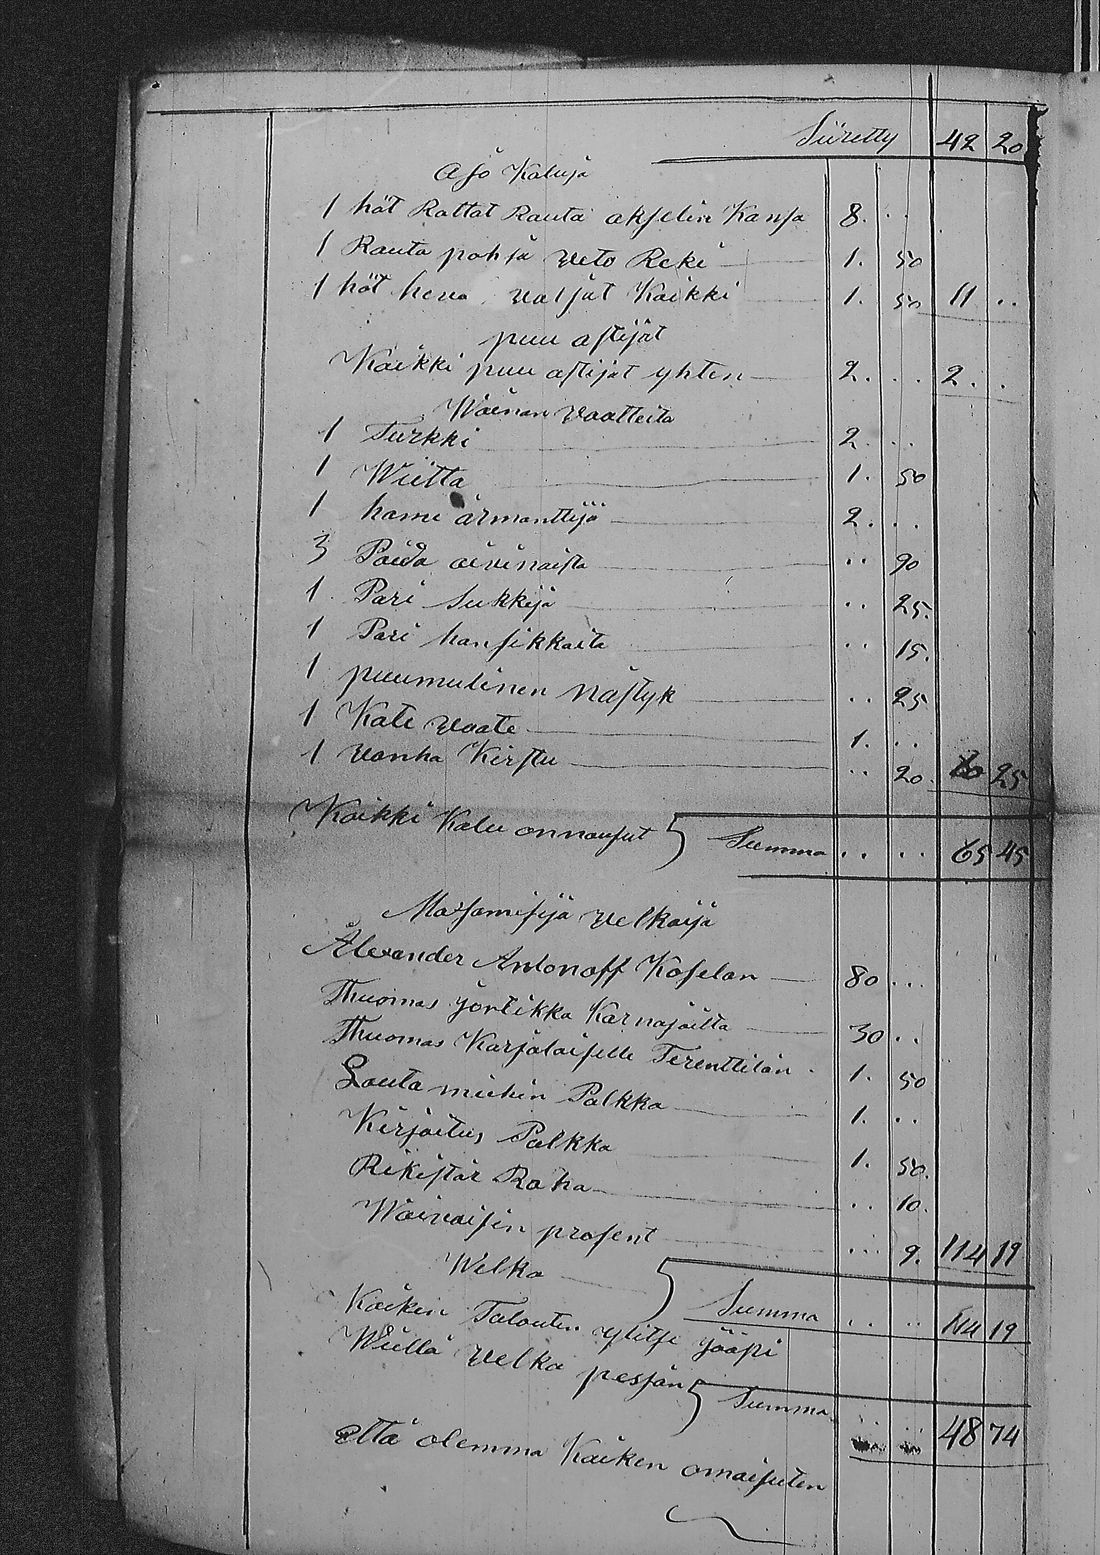 Siiretty 42 20
Ajo Kaluja
1 höt Rattat Rauta akselin Kansa 8. ..
1 Rauta pohja veto Reki 1. 50
1 höt hevo valjat Kaikki 1. 50 11 ..
puu astijat
Kaikki puu astijat yhten 2. .. 2. ..
Wainan vaatteita
1 Turkki 2. ..
1 Wiitta 1. 50
1 hame ärmanttijä 2. ..
3 Paida aivinaista .. 90
1 Pari Sukkija .. 25.
1 Pari hansikkaita .. 15.
1 puumulinen nästyk .. 25
1 Kate vaate 1. ..
1 vanha Kirstu .. 20. 10 25
Kaikki Kalu onnausut } Summa .. .. 65 45
Maxamisija velkoija
Älexander Antonoff Koselan 80 ...
Thuomas yörlikka Karnajoilta 30 ..
Thuomas Karjalaiselle Terenttilän 1. 50
Lautamiehin Palkka 1. ..
Kirjoitus Palkka 1. 50.
Rikistär Raha .. 10.
Waivaisin prosent ... 9. 114 19
Welka } Summa .. .. 114 19
Kaiken Talouten ylitse jääpi
Wiellä velka pesjän } Summa ... ... 48 74
että olemma Kaiken omaisuten